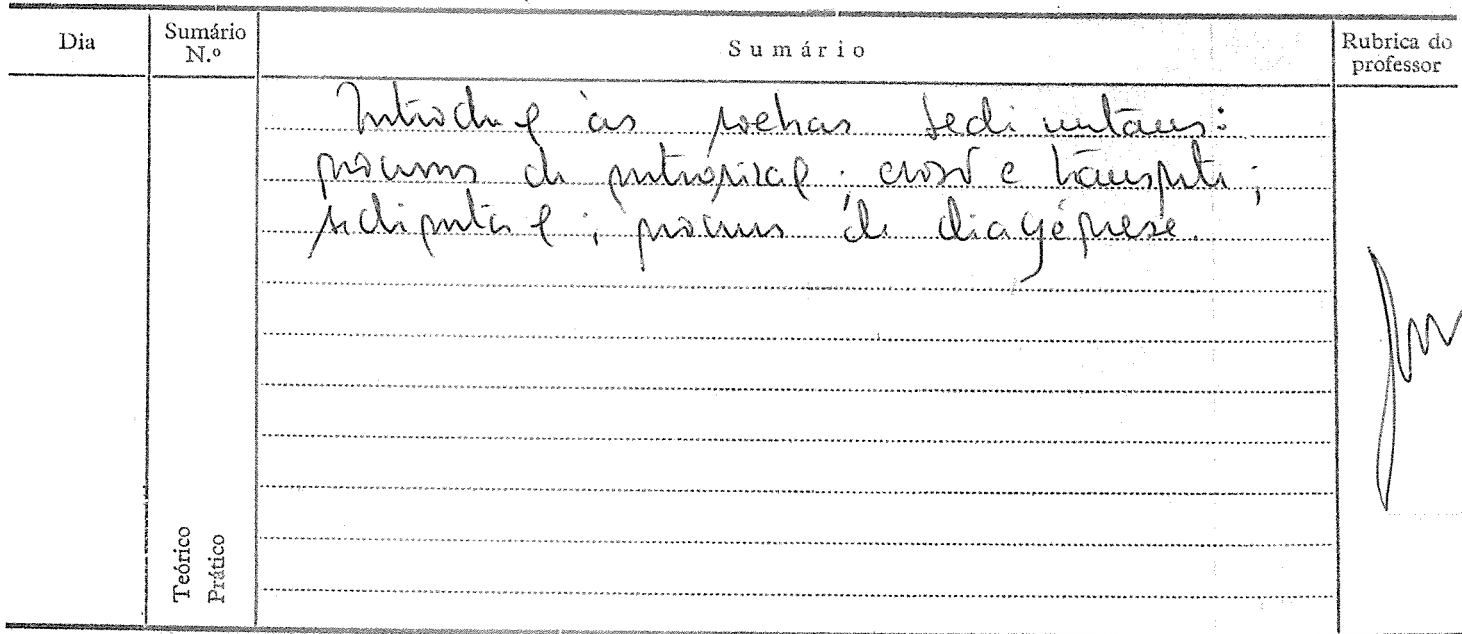 Dia
Sumário N.º
Sumário
Rubrica do professor
Introdução às rochas sedimentares:
processos de meteorização; erosão e transporte;
sedimentação; processos de diagénese.
Teórico
Prático